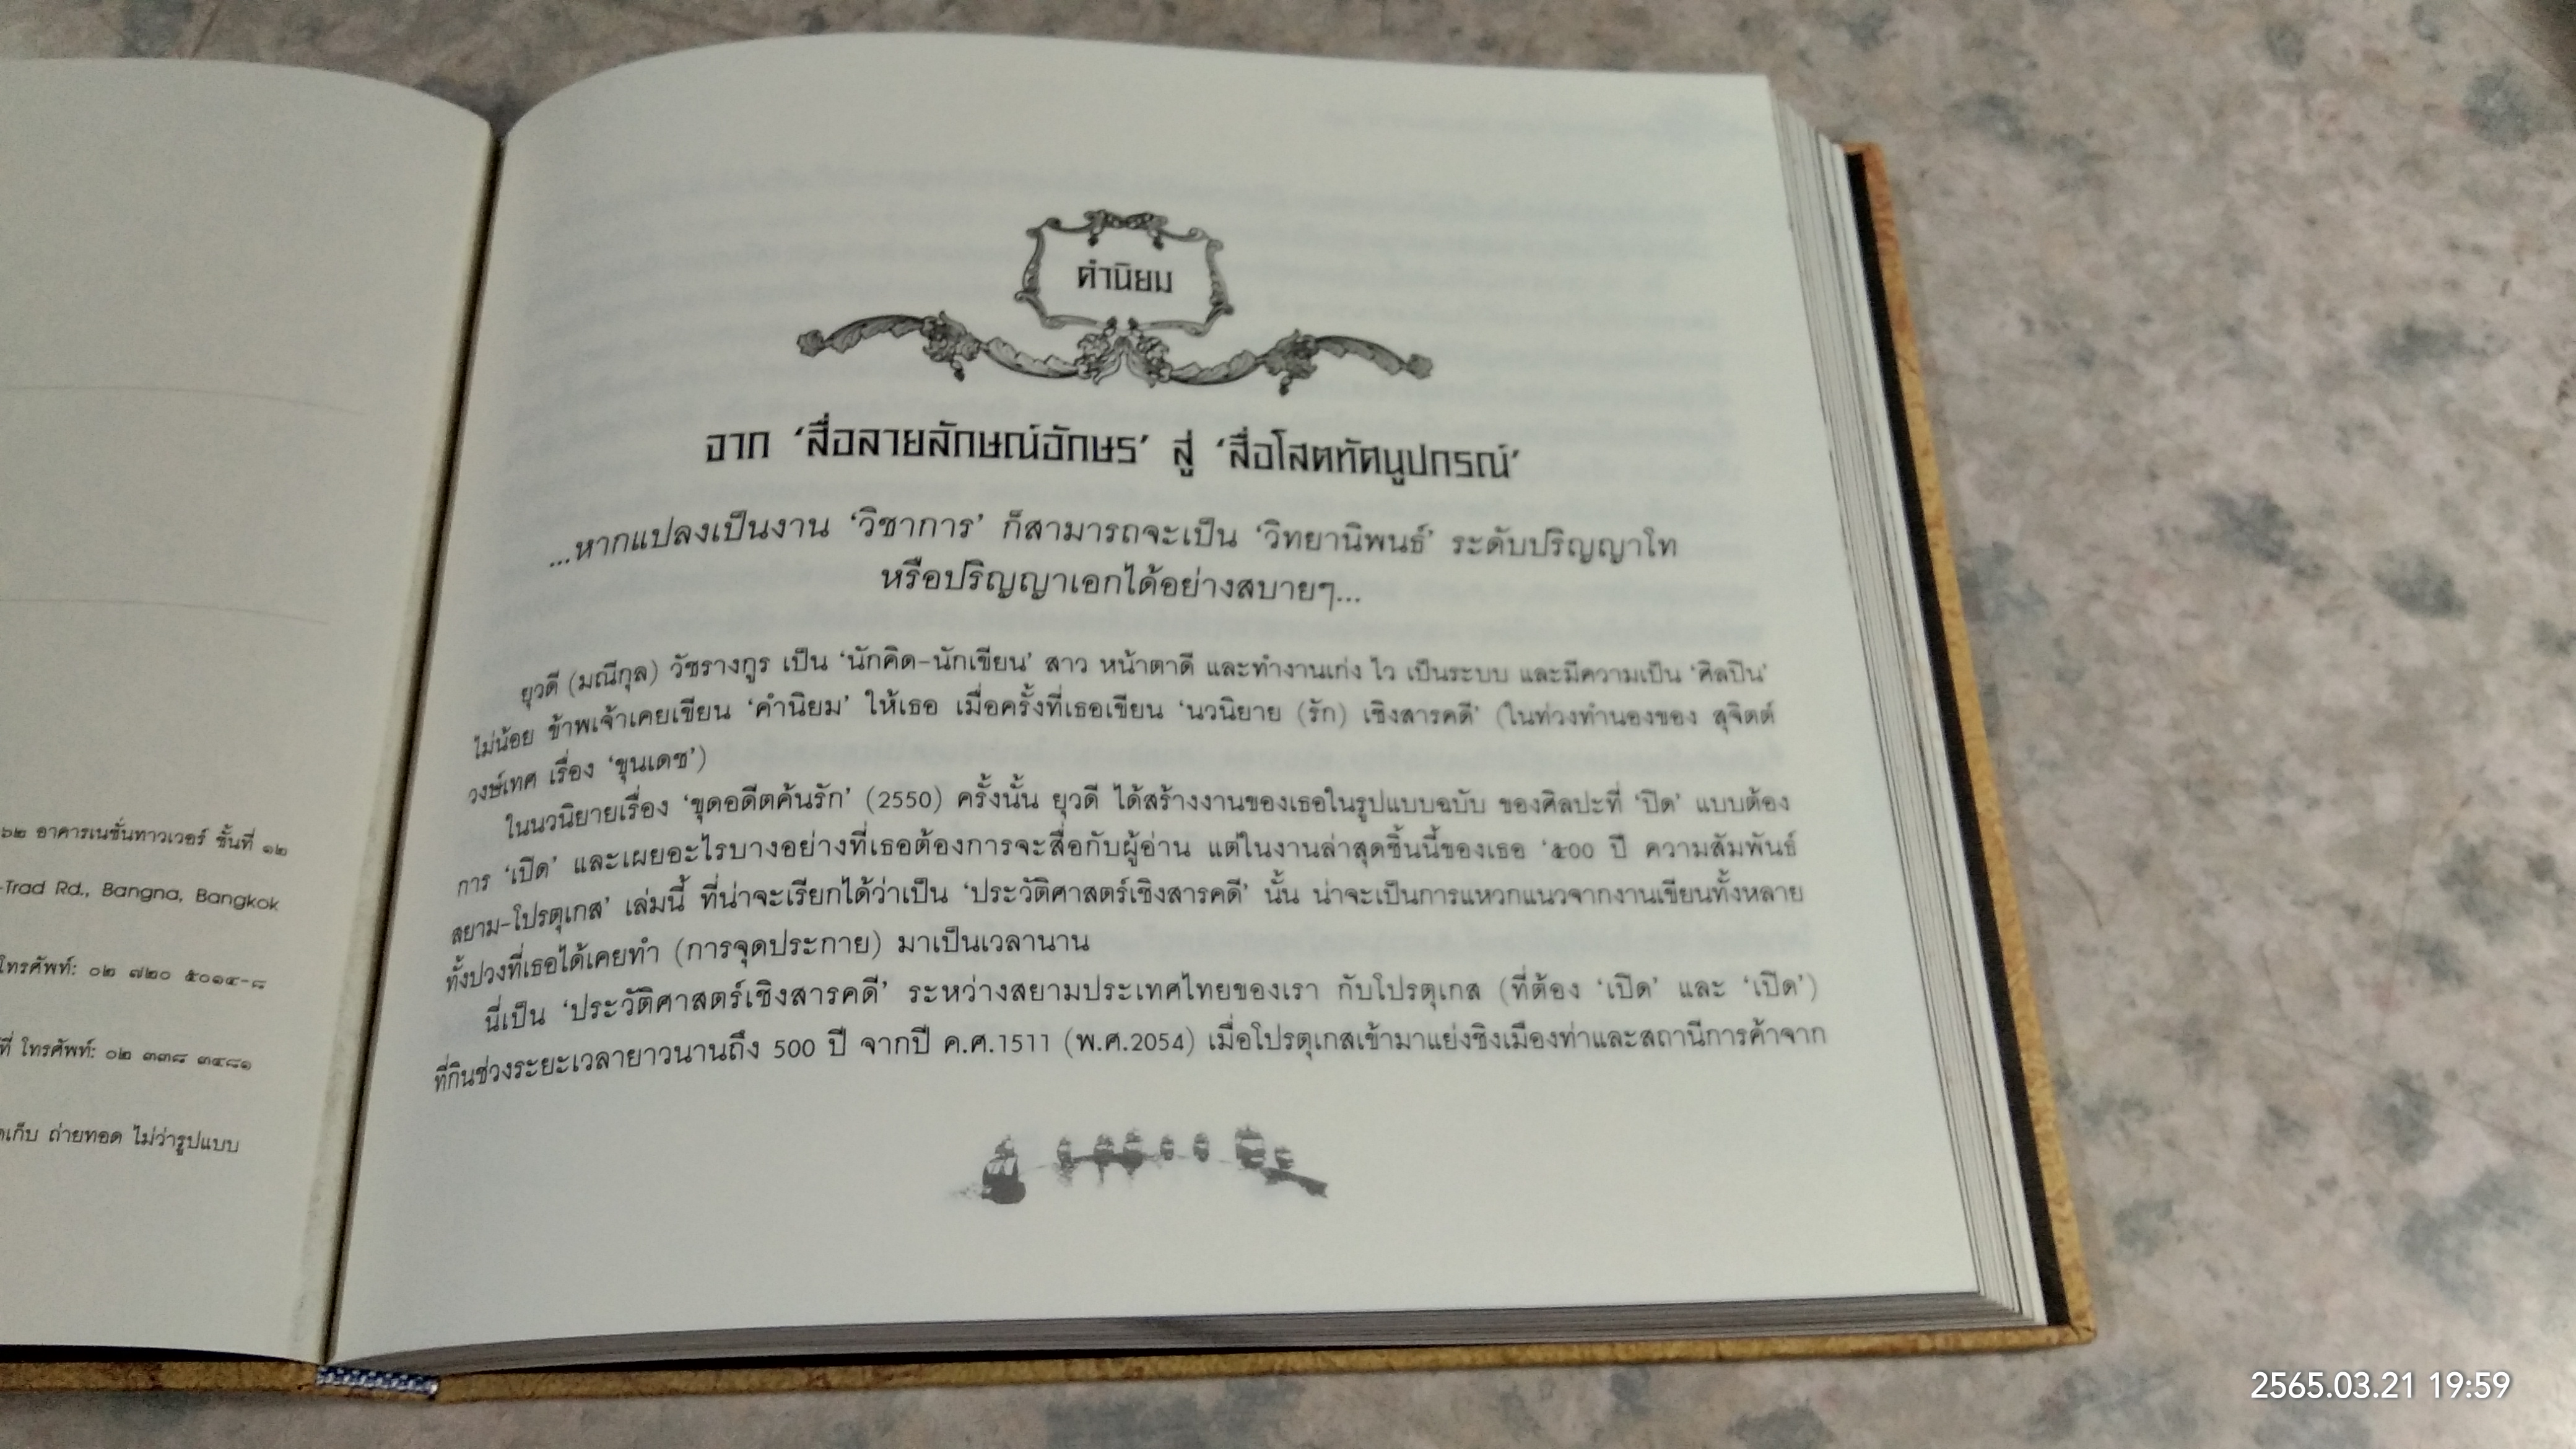 ๖๒ อาคารเนชั่นทาวเวอร์ ชั้นที่ ๑๒
-Trad Rd., Bangna, Bangkok
โทรศัพท์: ๐๒ ๗๒๐ ๕๐๑๔-๘
ที่ โทรศัพท์: ๐๒ ๓๓๘ ๓๔๘๑
ดเก็บ ถ่ายทอด ไม่ว่ารูปแบบ
คำนิยม
จาก 'สื่อลายลักษณ์อักษร' สู่ 'สื่อโสตทัศนูปกรณ์'
...หากแปลงเป็นงาน 'วิชาการ' ก็สามารถจะเป็น 'วิทยานิพนธ์' ระดับปริญญาโท
หรือปริญญาเอกได้อย่างสบายๆ...
ยุวดี (มณีกุล) วัชรางกูร เป็น 'นักคิด-นักเขียน' สาว หน้าตาดี และทำงานเก่ง ไว เป็นระบบ และมีความเป็น 'ศิลปิน'
ไม่น้อย ข้าพเจ้าเคยเขียน 'คำนิยม' ให้เธอ เมื่อครั้งที่เธอเขียน 'นวนิยาย (รัก) เชิงสารคดี' (ในท่วงทำนองของ สุจิตต์
วงษ์เทศ เรื่อง 'ขุนเดช')
ในนวนิยายเรื่อง 'ขุดอดีตค้นรัก' (2550) ครั้งนั้น ยุวดี ได้สร้างงานของเธอในรูปแบบฉบับ ของศิลปะที่ 'ปิด' แบบต้อง
การ 'เปิด' และเผยอะไรบางอย่างที่เธอต้องการจะสื่อกับผู้อ่าน แต่ในงานล่าสุดชิ้นนี้ของเธอ '๕๐๐ ปี ความสัมพันธ์
สยาม-โปรตุเกส' เล่มนี้ ที่น่าจะเรียกได้ว่าเป็น 'ประวัติศาสตร์เชิงสารคดี' นั้น น่าจะเป็นการแหวกแนวจากงานเขียนทั้งหลาย
ทั้งปวงที่เธอได้เคยทำ (การจุดประกาย) มาเป็นเวลานาน
นี่เป็น 'ประวัติศาสตร์เชิงสารคดี' ระหว่างสยามประเทศไทยของเรา กับโปรตุเกส (ที่ต้อง 'เปิด' และ 'เปิด')
ที่กินช่วงระยะเวลายาวนานถึง 500 ปี จากปี ค.ศ.1511 (พ.ศ.2054) เมื่อโปรตุเกสเข้ามาแย่งชิงเมืองท่าและสถานีการค้าจาก
2565.03.21 19:59